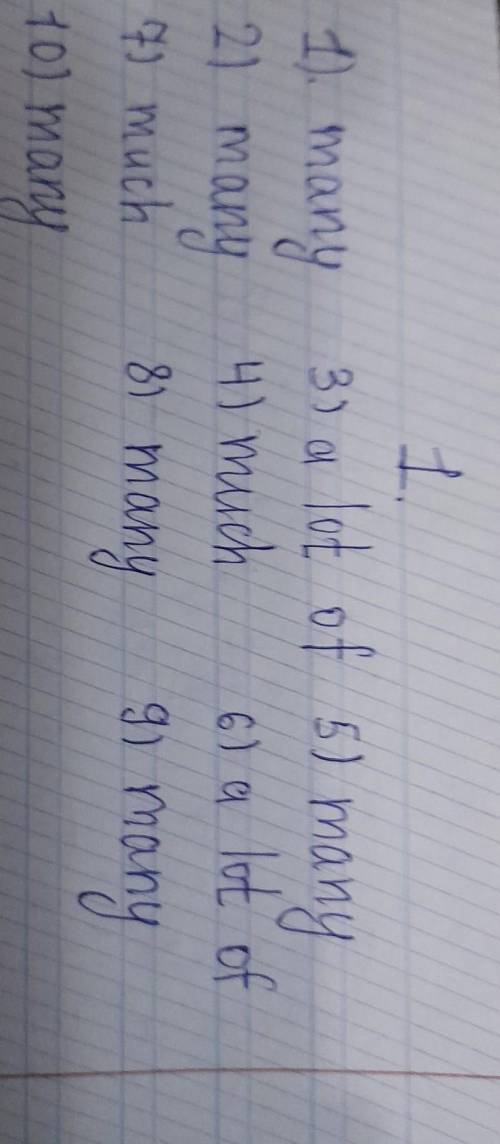 1.
1). many 3) a lot of 5) many
2) many 4) much 6) a lot of
7) much 8) many 9) many
10) many